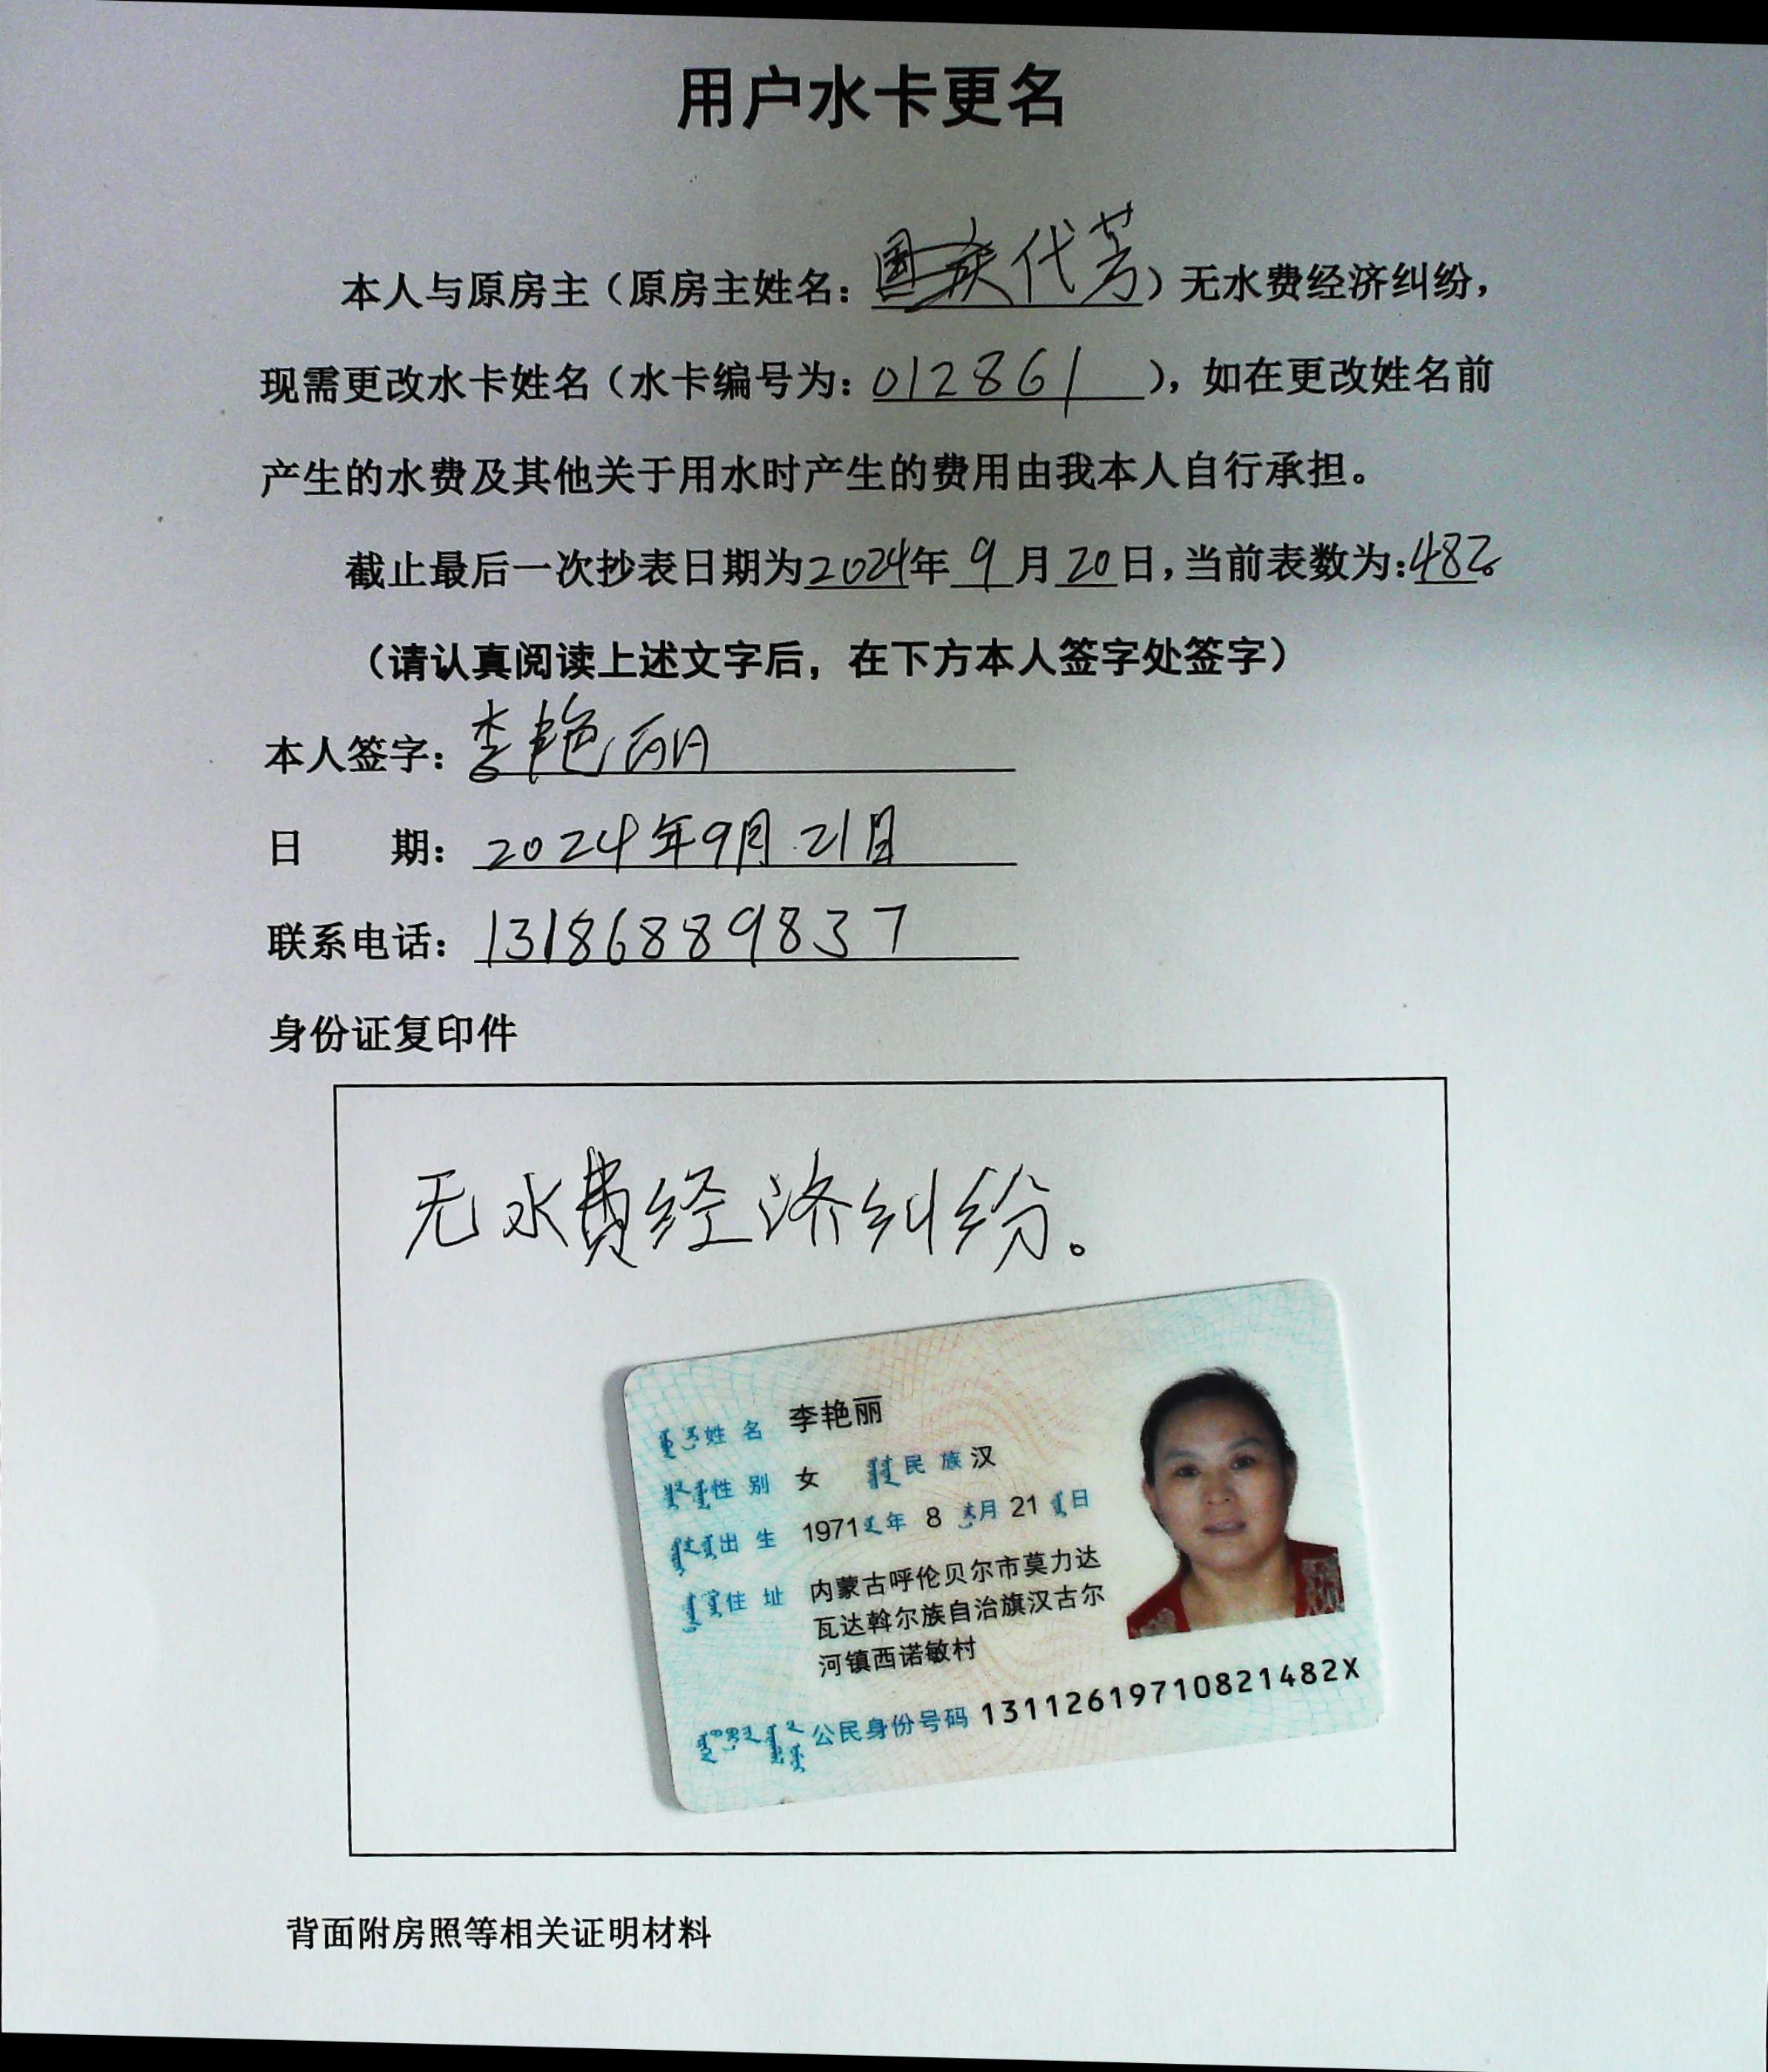 用户水卡更名
本人与原房主（原房主姓名：代芳）无水费经济纠纷，
现需更改水卡姓名（水卡编号为：012861），如在更改姓名前
产生的水费及其他关于用水时产生的费用由我本人自行承担。
截止最后一次抄表日期为2024年9月20日，当前表数为：482。
（请认真阅读上述文字后，在下方本人签字处签字）
本人签字：李艳丽
日期：2024年9月21日
联系电话：13186889837
身份证复印件
无水费经济纠纷。
姓名 李艳丽
性别 女 民族 汉
出生 1971年8月21日
住址 内蒙古呼伦贝尔市莫力达
瓦达斡尔族自治旗汉古尔
河镇西诺敏村
公民身份号码 13112619710821482X
背面附房照等相关证明材料